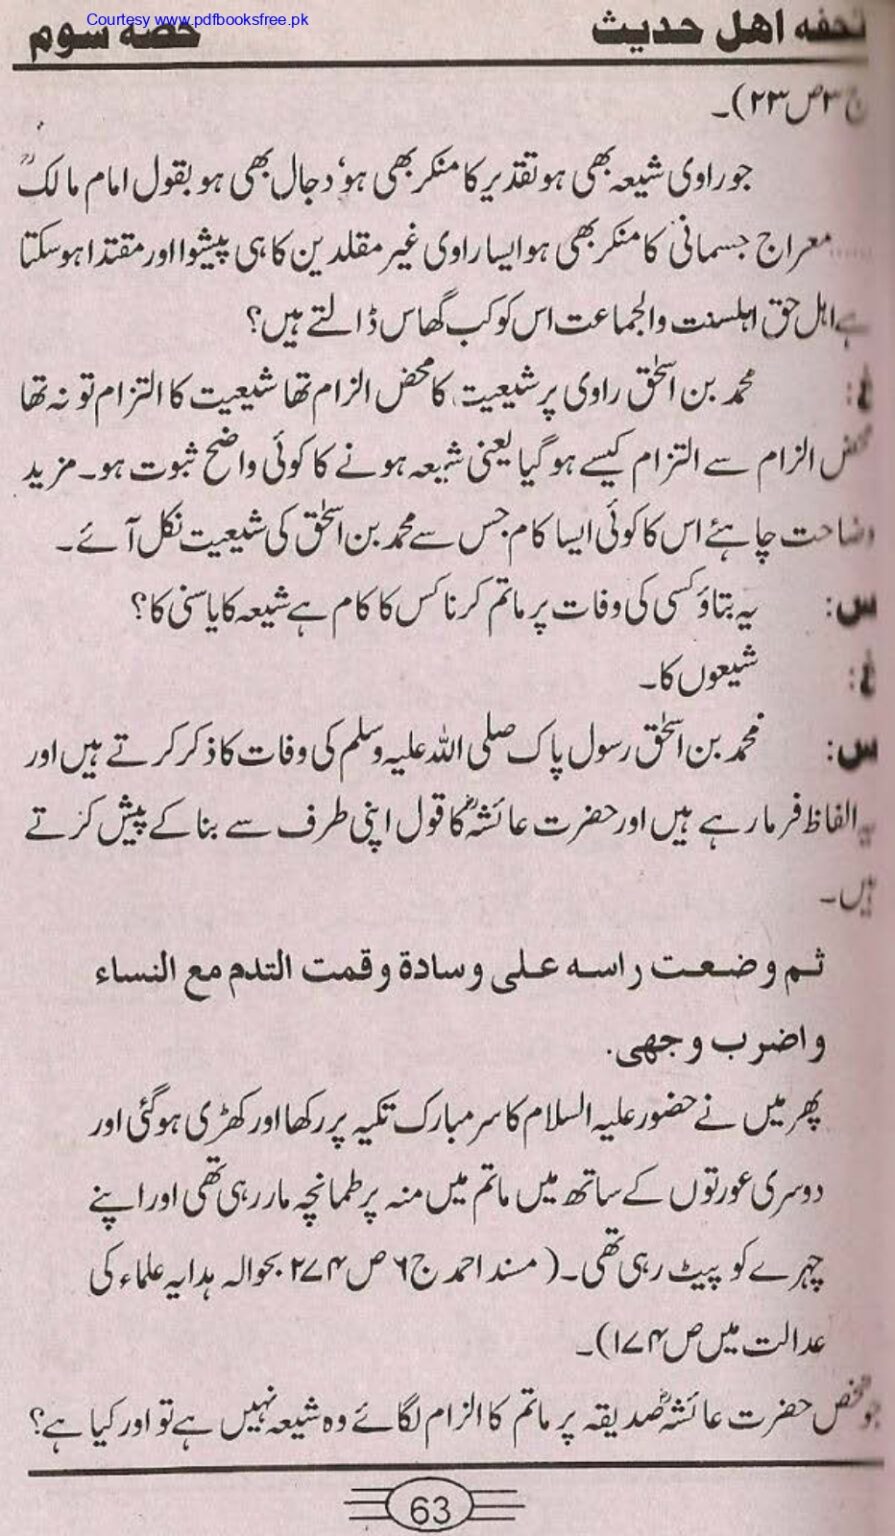 Courtesy www.pdfbooksfree.pk
تحفه اهل حديث حصه سوم
ج ۳ ص ۲۳)۔
جو راوی شیعہ بھی ہو تقدیر کا منکر بھی ہو، دجال بھی ہو بقول امام مالکؒ
..... معراج جسمانی کا منکر بھی ہو ایسا راوی غیر مقلدین کا ہی پیشوا اور مقتدا ہو سکتا
ہے اہل حق اہلسنت والجماعت اس کو کب گھاس ڈالتے ہیں؟
غ: محمد بن اسحٰق راوی پر شیعیت کا محض الزام تھا شیعیت کا التزام تو نہ تھا
محض الزام سے التزام کیسے ہو گیا یعنی شیعہ ہونے کا کوئی واضح ثبوت ہو۔ مزید
وضاحت چاہئے اس کا کوئی ایسا کام جس سے محمد بن اسحٰق کی شیعیت نکل آئے۔
س: یہ بتاؤ کسی کی وفات پر ماتم کرنا کس کا کام ہے شیعہ کا یا سنی کا؟
غ: شیعوں کا۔
س: محمد بن اسحٰق رسول پاک صلی اللہ علیہ وسلم کی وفات کا ذکر کرتے ہیں اور
یہ الفاظ فرما رہے ہیں اور حضرت عائشہؓ کا قول اپنی طرف سے بنا کے پیش کرتے
ہیں۔
ثم وضعت راسه على وسادة وقمت التدم مع النساء
واضرب وجهى.
پھر میں نے حضور علیہ السلام کا سر مبارک تکیہ پر رکھا اور کھڑی ہو گئی اور
دوسری عورتوں کے ساتھ میں ماتم میں منہ پر طمانچہ مار رہی تھی اور اپنے
چہرے کو پیٹ رہی تھی۔ (مسند احمد ج ۶ ص ۲۷۴ بحوالہ ہدایہ علماء کی
عدالت میں ص ۱۷۴)۔
جو شخص حضرت عائشہؓ صدیقہ پر ماتم کا الزام لگائے وہ شیعہ نہیں ہے تو اور کیا ہے؟
63